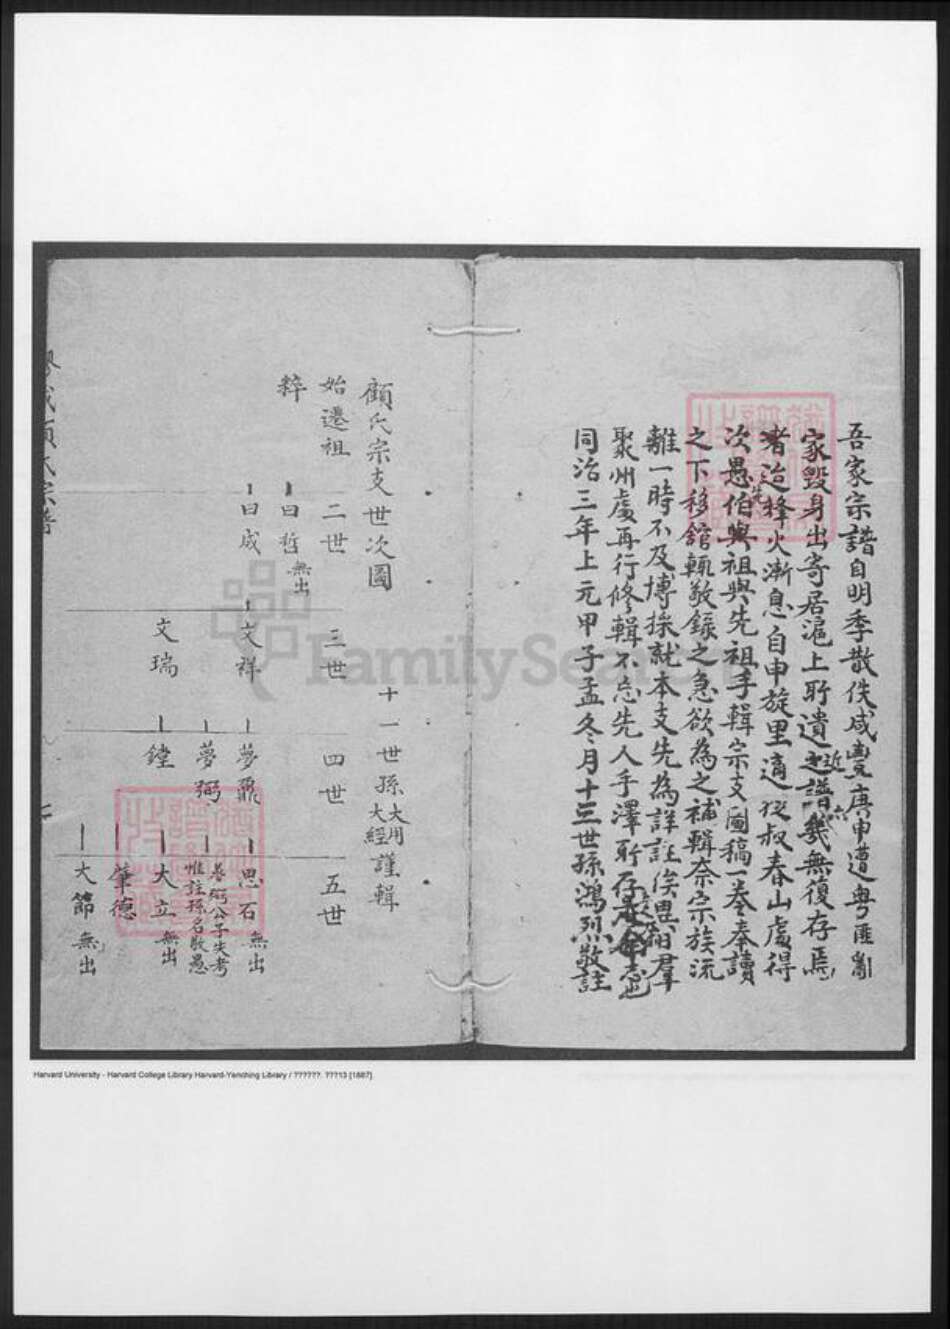 吾家宗譜自明季散佚咸豐庚申遭粵匪亂
家毀身出寄居滬上所遺之譜幾無復存焉
者迨烽火漸息自申旋里適從叔春山處得
次愚伯與祖與先祖手輯宗支圖稿一卷奉讀
之下移館輒敬錄之急欲為之補輯奈宗族流
離一時不及博採就本支先為詳註俟異日羣
聚州處再行修輯不忘先人手澤所存
同治三年上元甲子孟冬月十三世孫鴻烈敬註
顧氏宗支世次圖
十一世孫大用大經謹輯
始遷祖 二世 三世 四世 五世
粹
曰哲 無出
曰成 文祥 夢鼎 思石 無出
夢弼
惟註孫名敬愚
文瑞 鏜 大立 無出
肇德
大節 無出
顧氏宗譜
FamilySearch
Harvard University - Harvard College Library Harvard-Yenching Library / ??????. ???13 [1887].